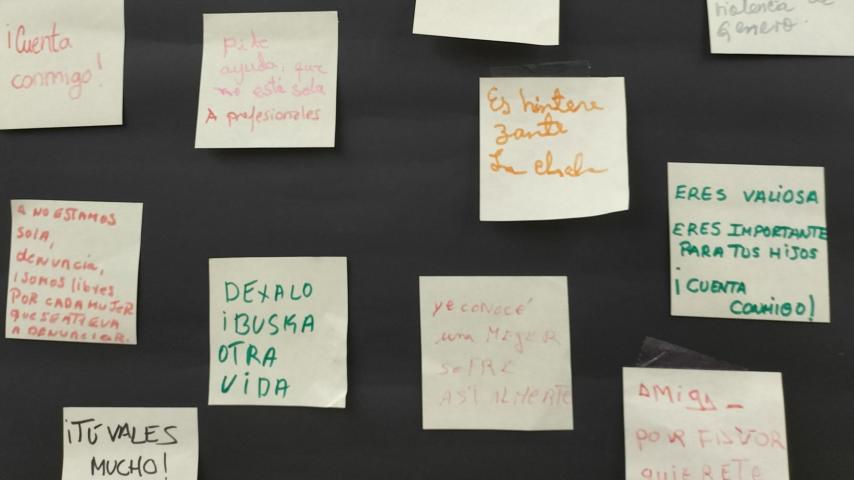 ¡Cuenta
conmigo!
pide
ayuda, que
no está sola
A profesionales
violencia de
Genero.
Es hintere
zante
La chala
ERES VALIOSA
ERES IMPORTANTE
PARA TUS HIJOS
¡CUENTA
CONMIGO!
NO ESTAMOS
SOLA,
denuncia,
¡SOMOS libres
POR CADA MUJER
QUE SE ATIEVA
A DENUNCIAR.
DEXALO
¡BUSKA
OTRA
VIDA
yo CONOCÉ
una MUJER
SOFRE
¡TÚ VALES
MUCHO!
AMIGA_
POR FAVOR
QUIERETE